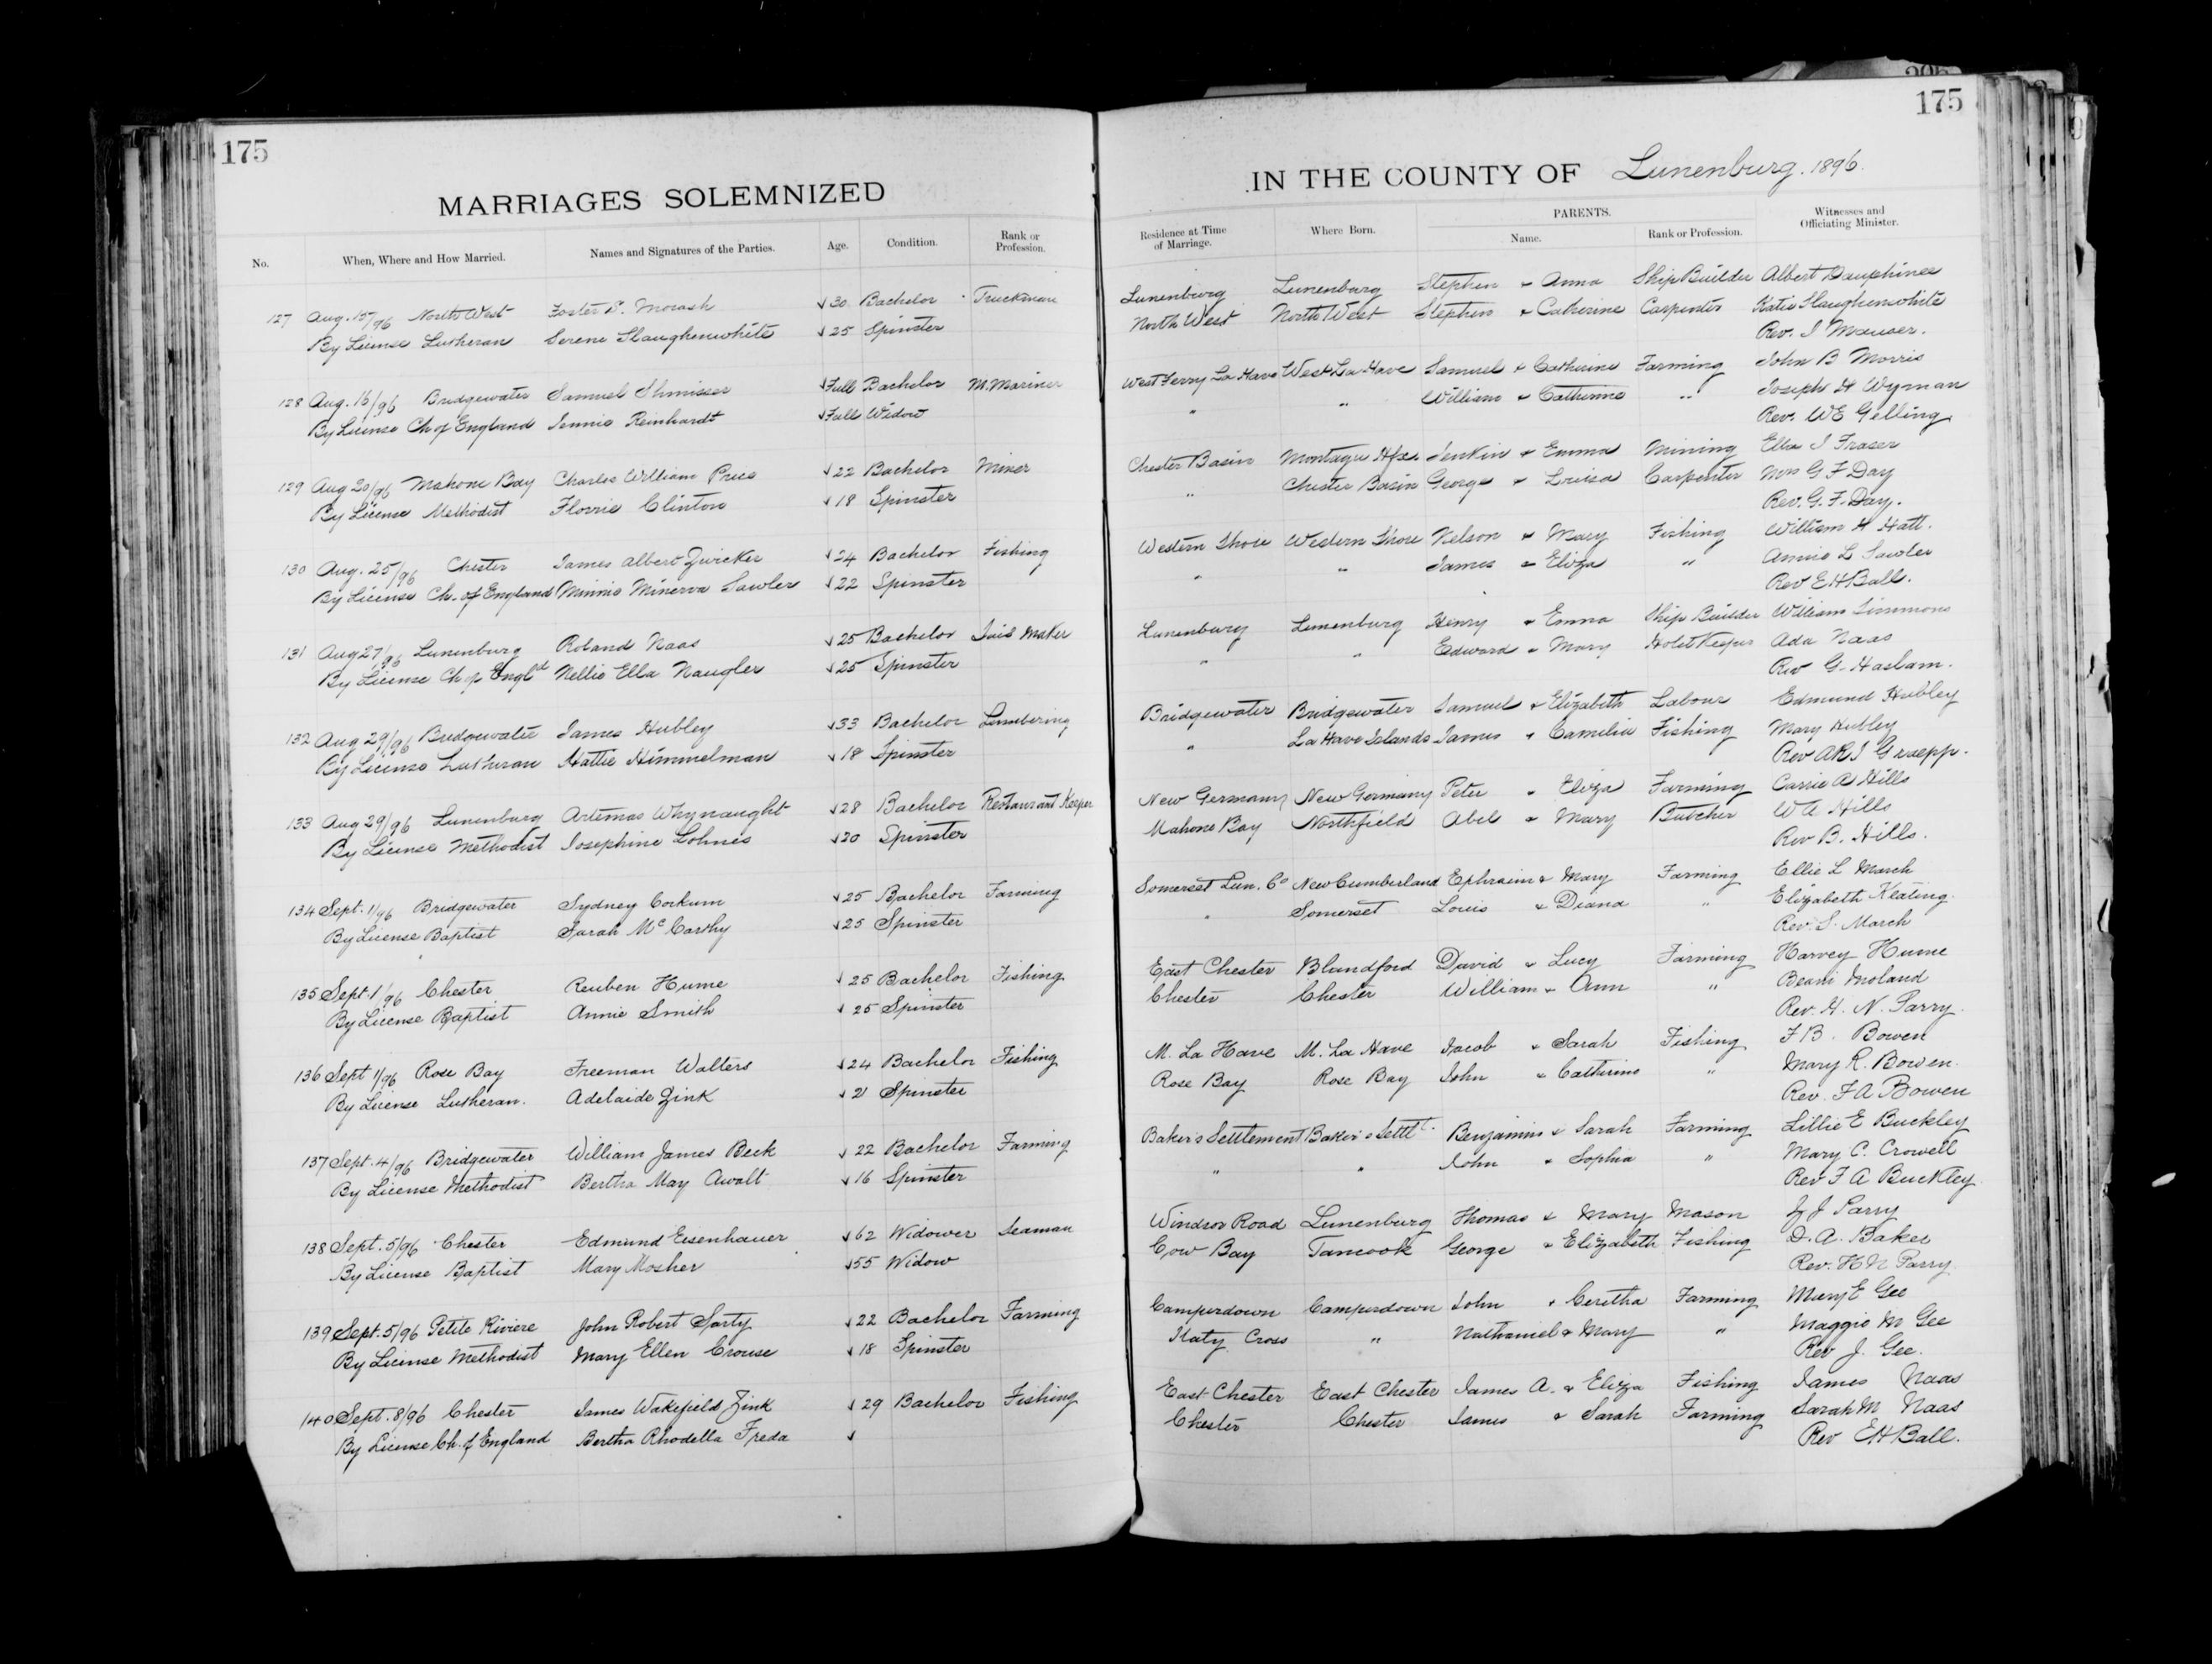 175
MARRIAGES SOLEMNIZED
No. When, Where and How Married. Names and Signatures of the Parties. Age. Condition. Rank or Profession.
127 Aug. 15/96 North West Foster S. Morash √30 Bachelor Truckman
By License Lutheran Serene Slaughenwhite √25 Spinster
128 Aug. 16/96 Bridgewater Samuel Shmisser √Full Bachelor M. Mariner
By License Ch of England Jennie Reinhardt √Full Widow
129 Aug 20/96 Mahone Bay Charles William Prees √22 Bachelor Miner
By License Methodist Florrie Clinton √18 Spinster
130 Aug. 25/96 Chester James Albert Zwicker √24 Bachelor Fishing
By License Ch. of England Minnie Minerva Sawler √22 Spinster
131 Aug 27/96 Lunenburg Roland Naas √25 Bachelor Sail Maker
By License Ch of Engld Nellie Ella Naugler √25 Spinster
132 Aug 29/96 Bridgewater James Hubley √33 Bachelor Lumbering
By License Lutheran Hattie Himmelman √18 Spinster
133 Aug 29/96 Lunenburg Artemas Whynaught √28 Bachelor Restaurant Keeper
By License Methodist Josephine Lohnes √20 Spinster
134 Sept. 1/96 Bridgewater Sydney Corkum √25 Bachelor Farming
By License Baptist Sarah McCarthy √25 Spinster
135 Sept. 1/96 Chester Reuben Hume √25 Bachelor Fishing
By License Baptist Annie Smith √25 Spinster
136 Sept 1/96 Rose Bay Freeman Walters √24 Bachelor Fishing
By License Lutheran. Adelaide Zink √21 Spinster
137 Sept. 4/96 Bridgewater William James Beck √22 Bachelor Farming
By License Methodist Bertha May Awalt √16 Spinster
138 Sept. 5/96 Chester Edmund Eisenhauer √62 Widower Seaman
By License Baptist Mary Mosher √55 Widow
139 Sept. 5/96 Petite Riviere John Robert Sarty √22 Bachelor Farming
By License Methodist Mary Ellen Crouse √18 Spinster
140 Sept. 8/96 Chester James Wakefield Zink √29 Bachelor Fishing
By License Ch. of England Bertha Rhodella Freda √
175
IN THE COUNTY OF Lunenburg. 1896.
Residence at Time of Marriage. Where Born. PARENTS. Name. Rank or Profession. Witnesses and Officiating Minister.
Lunenburg Lunenburg Stephen & Anna Ship Builder Albert Dauphinee
North West North West Stephen & Catherine Carpenter Katie Slaughenwhite
Rev. J Mauser.
West Ferry La Have West La Have Samuel & Catherine Farming John B Morris
" " William & Catherine " Joseph H Wyman
Rev. WE Gelling
Chester Basin Montague Hfx. Jenkin & Emma Mining Ella J Fraser
" Chester Basin George & Louisa Carpenter Mrs G F Day
Rev. G. F. Day.
Western Shore Western Shore Nelson & Mary Fishing William H Hatt.
" " James & Eliza " Annie L Sawler
Rev E H Ball.
Lunenburg Lunenburg Henry & Emma Ship Builder William Simmons
" " Edward & Mary Hotel Keeper Ada Naas
Rev G. Haslam.
Bridgewater Bridgewater Samuel & Elizabeth Labour Edmund Hubley
" La Have Islands James & Camilia Fishing Mary Hubley
Rev AKJ Graepp.
New Germany New Germany Peter & Eliza Farming Carrie A Hills
Mahone Bay Northfield Abel & Mary Butcher W A Hills
Rev B. Hills.
Somerset Lun. Co New Cumberland Ephraim & Mary Farming Ellie L March
" Somerset Louis & Diana " Elizabeth Keating.
Rev. S. March
East Chester Blandford David & Lucy Farming Harvey Hume
Chester Chester William & Ann " Moland
Rev. H. N. Parry.
M. La Have M. La Have Jacob & Sarah Fishing F B. Bowen
Rose Bay Rose Bay John & Catherine " Mary R. Bowen.
Rev. F A Bowen
Baker's Settlement Baker's Settlt. Benjamin & Sarah Farming Lillie E Buckley
" " John & Sophia " Mary C. Crowell
Rev F A Buckley
Windsor Road Lunenburg Thomas & Mary Mason J Parry
Cow Bay Tancook George & Elizabeth Fishing D. A. Baker
Rev. H N Parry.
Camperdown Camperdown John & Ceretha Farming Mary E Gee
Italy Cross " Nathaniel & Mary " Maggie M Gee
Rev J. Gee.
East Chester East Chester James A. & Eliza Fishing James Naas
Chester Chester James & Sarah Farming Sarah M Naas
Rev E H Ball.